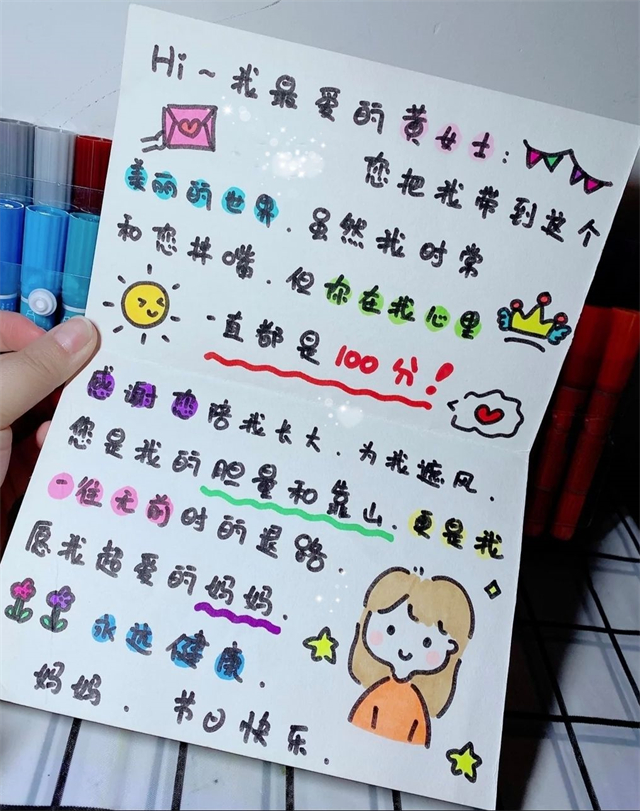 Hi~我最爱的黄女士:
您把我带到这个
美丽的世界.虽然我时常
和您拌嘴.但你在我心里
一直都是100分!
感谢您陪我长大.为我遮风.
您是我的胆量和靠山.更是我
一往无前时的退路.
愿我超爱的妈妈.
永远健康.
妈妈.节日快乐.